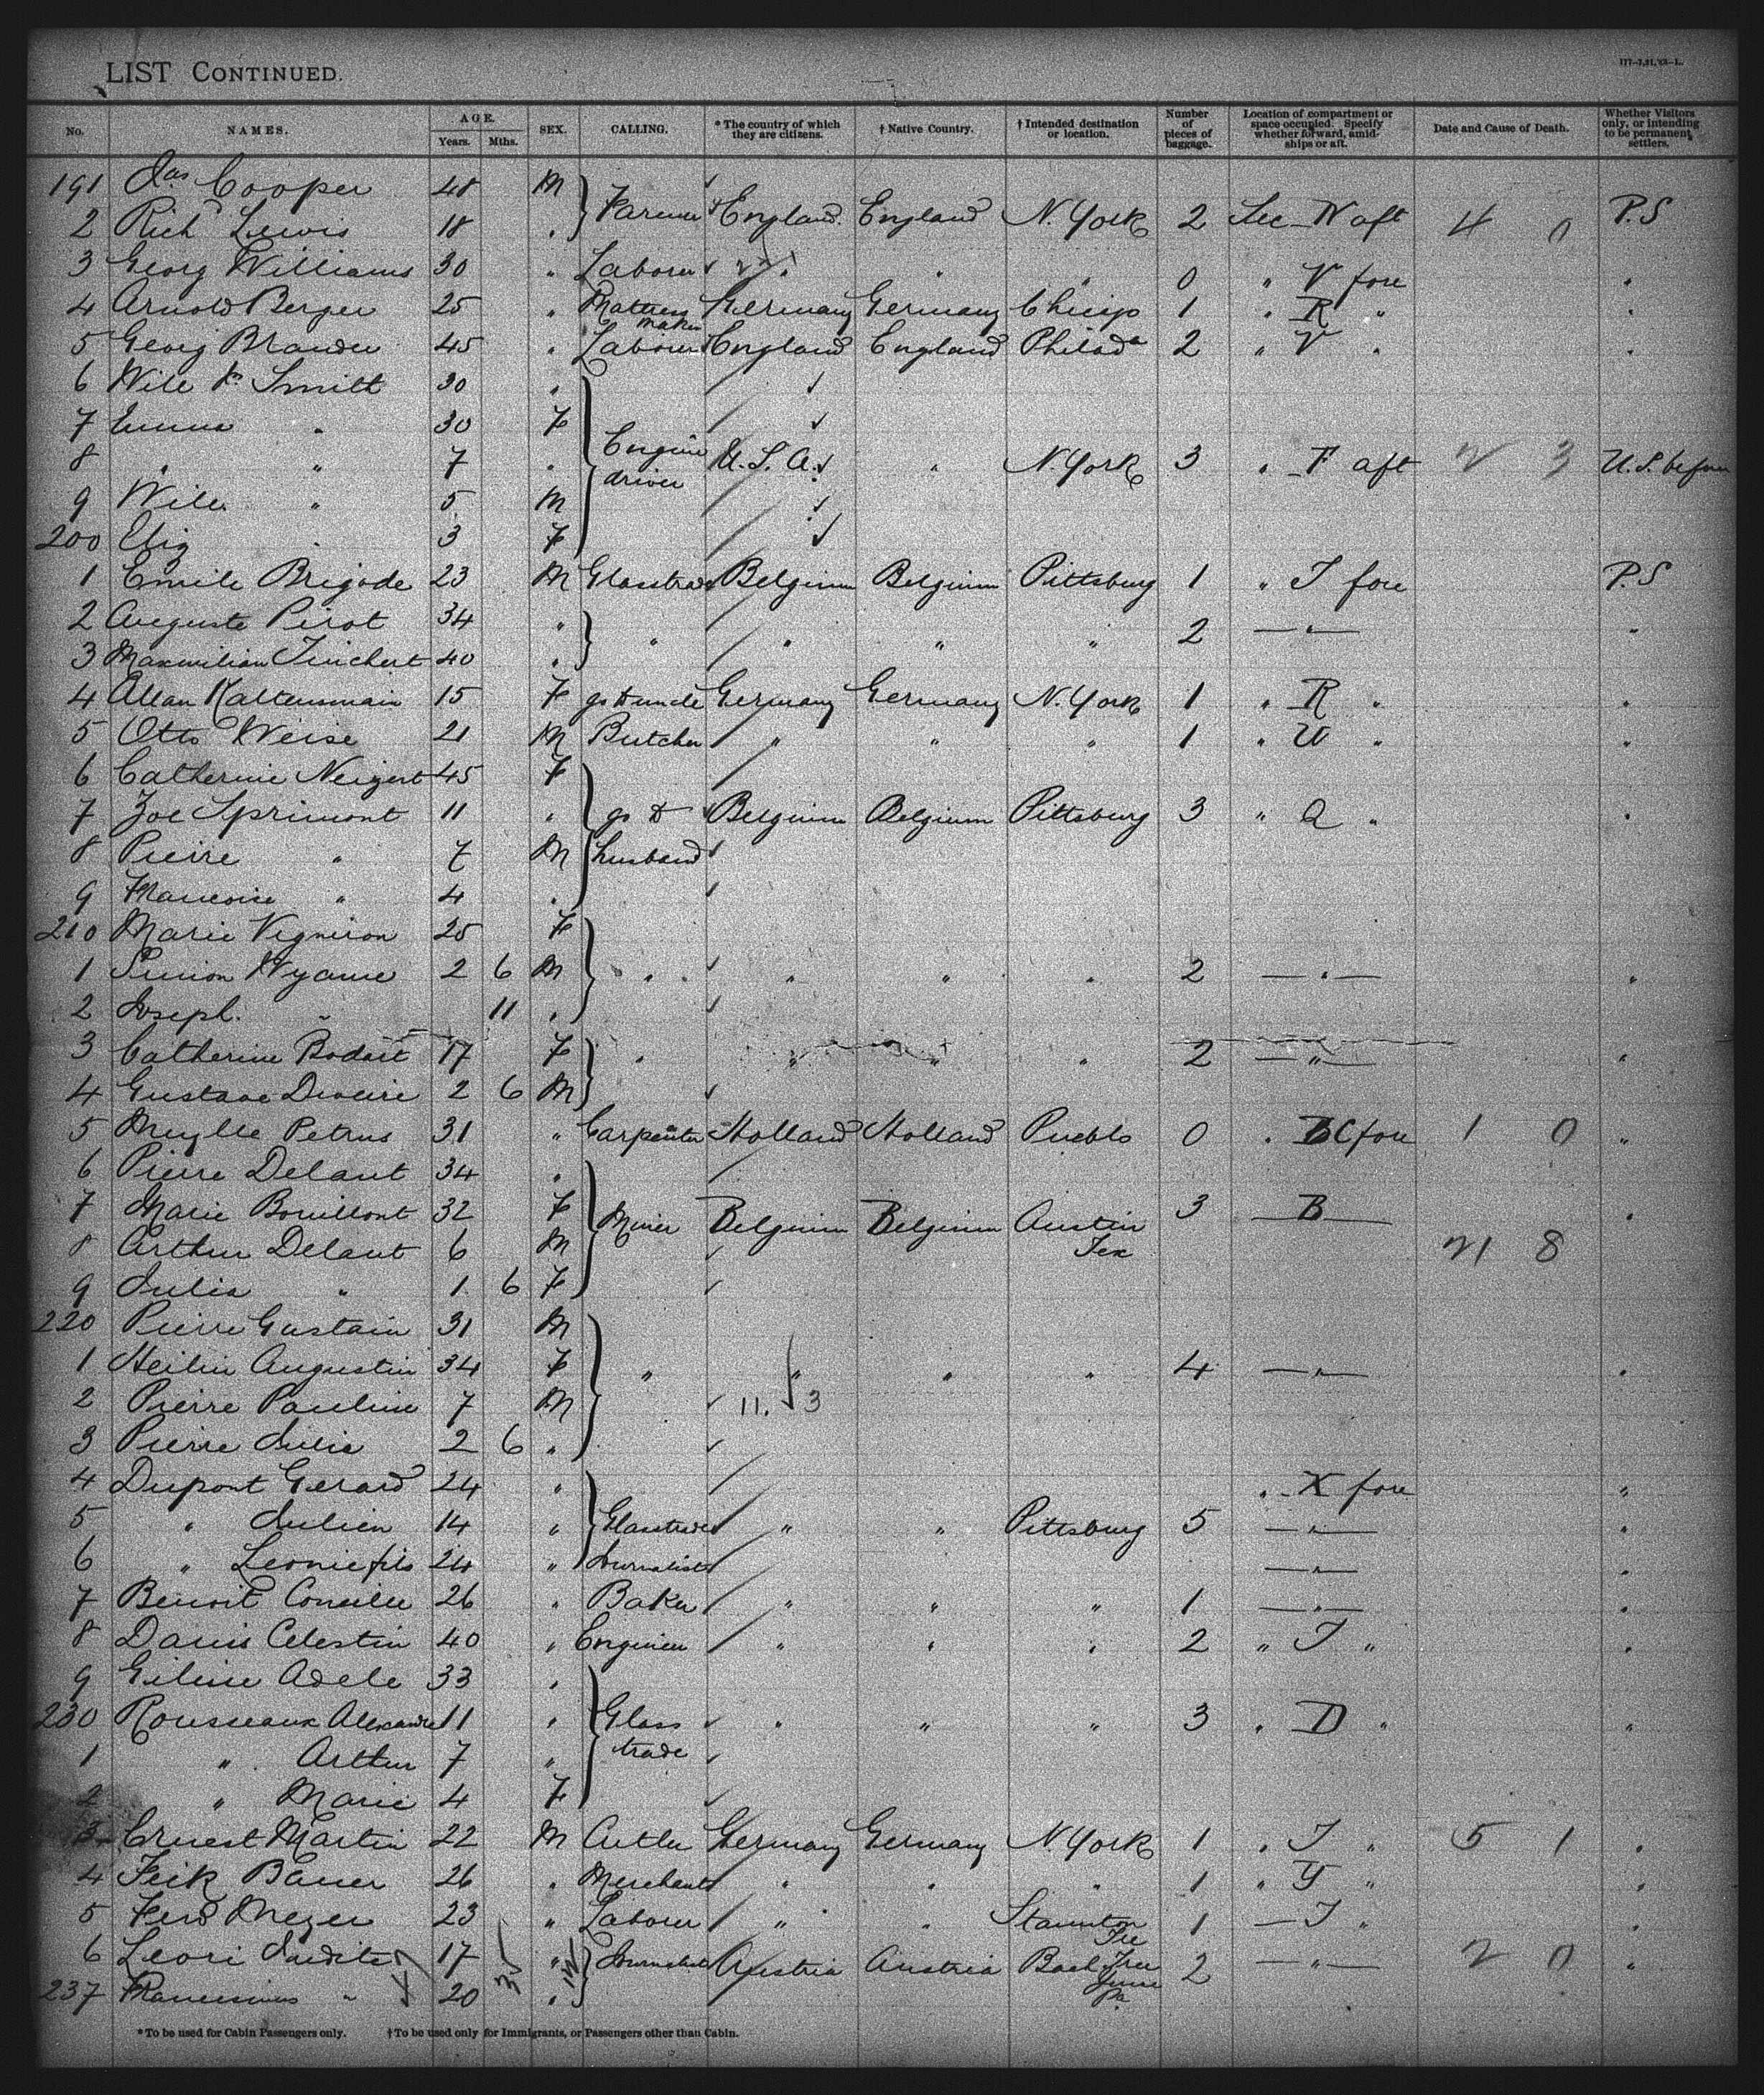 LIST CONTINUED.
177-7,31,'93-L.
No. NAMES. AGE. Years. Mths. SEX. CALLING. * The country of which they are citizens. † Native Country. † Intended destination or location. Number of pieces of baggage. Location of compartment or space occupied. Specify whether forward, amidships or aft. Date and Cause of Death. Whether Visitors only, or intending to be permanent settlers.
191 Jas Cooper 48 M
Farmer England England N. York 2 Sec W aft 4 0 P.S
2 Richd Lewis 18 "
3 Georg Williams 30 " Laborer " " " 0 " V fore "
4 Arnold Berger 25 " Mattress maker Germany Germany Chicago 1 " R " "
5 Georg 45 " Laborer England England Philada 2 " V " "
6 Will Smith 30 "
7 Emma " 30 F
8 " " 7 " Engine driver U.S.A. " N. York 3 " F aft 2 3 U.S. before
9 Will " 5 M
200 Eliz " 3 F
1 Emile Brigode 23 M Glasstrade Belgium Belgium Pittsburg 1 " T fore P.S
2 Auguste Pirot 34 "
" " " " 2 — " — "
3 Maxmilian Tinchert 40 "
4 Allan Kaltensmain 15 F go to uncle Germany Germany N. York 1 " R " "
5 Otto Weise 21 M Butcher " " " 1 " U " "
6 Catherine Neizert 45 F
7 Zoe Sprimont 11 " go to husband Belgium Belgium Pittsburg 3 " Q " "
8 Pierre " 7 M
9 Francoise " 4 "
210 Marie Vigniron 25 F
1 Simon Wyame 2 6 M " " " " 2 — " — "
2 Joseph " 11 "
3 Catherine Bodart 17 F " " " " 2 — " — "
4 Gustave 2 6 M
5 Meylle Petrus 31 " Carpenter Holland Holland Pueblo 0 " BC fore 1 0 "
6 Pierre Delaut 34 "
7 Marie Bouillont 32 F Miner Belgium Belgium Austin Tex 3 — B — "
8 Arthur Delaut 6 M 21 8
9 Julia " 1 6 F
220 Pierre Gustain 31 M
1 Heilin Augustin 34 F " " " " 4 — " — "
2 Pierre Pauline 7 M 11. 3
3 Pierre Julie 2 6 "
4 Dupont Gerard 24 " " X fore "
5 " Julien 14 " Glasstrade " " Pittsburg 5 — " — "
6 " Leonie fils 24 " Journalist — " — "
7 Benoit 26 " Baker " " " 1 — " — "
8 Danis Celestin 40 " Engineer " " " 2 " T " "
9 Adele 33 "
230 Rousseaux Alexandre 11 " Glass trade " " " 3 " D " "
1 " Arthur 7 "
2 " Marie 4 F
3 Ernest Martin 22 M Cutler Germany Germany N. York 1 " T " 5 1 "
4 Feik Bauer 26 " Merchant " " " 1 " Y " "
5 Ferd Mezer 23 " Laborer " " Staunton 1 — T " "
6 Leori 17 " Journalist Austria Austria 2 — " — 2 0 "
237 " 20 "
* To be used for Cabin Passengers only. † To be used only for Immigrants, or Passengers other than Cabin.